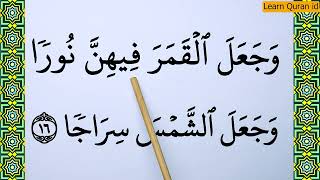 Learn Quran id
وَجَعَلَ ٱلْقَمَرَ فِيهِنَّ نُورًا
وَجَعَلَ ٱلشَّمْسَ سِرَاجًا ١٦